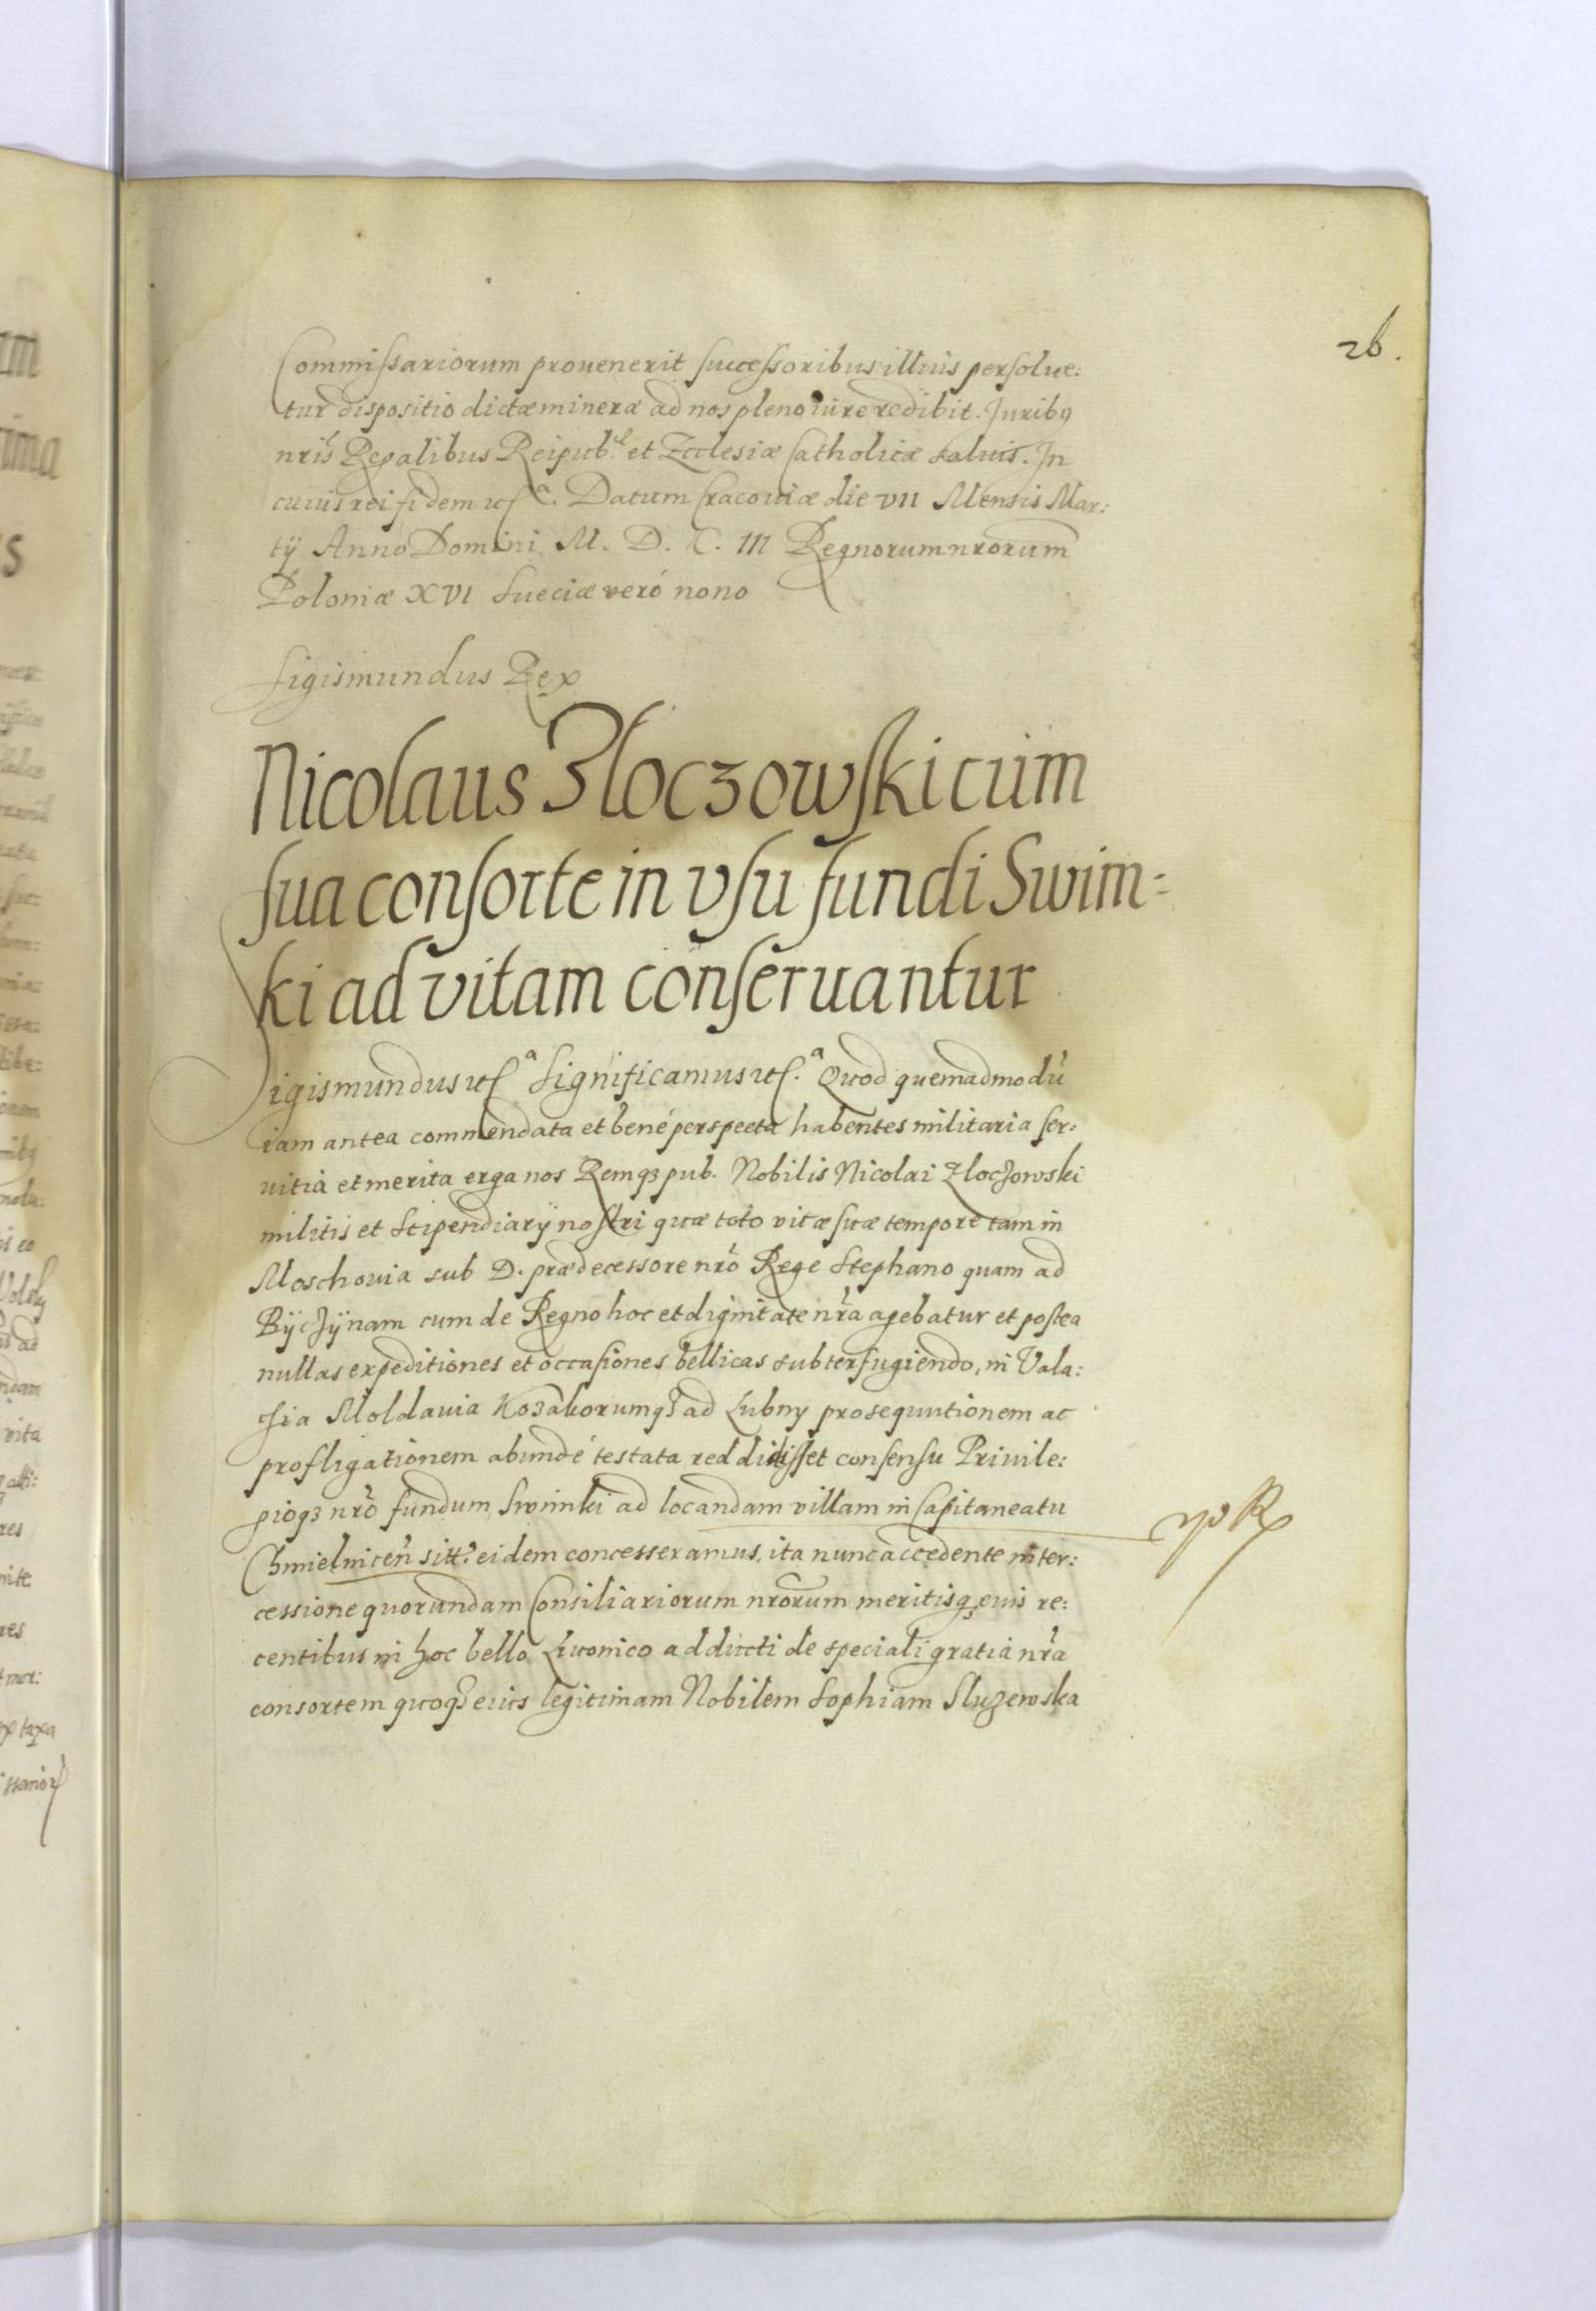 26.
Commissariorum prouenerit successoribus illius persolue:
tur dispositio dictæ mineræ ad nos pleno iure redibit. Juribq
nris Regalibus Reipub. et Ecclesiæ Catholicæ saluis. In
cuius rei fidem etc. Datum Cracouiæ die VII Mensis Mar:
tij Anno Domini M. D. C. III Regnorum nrorum
Poloniæ XVI Sueciæ veró nono
Sigismundus Rex
Nicolaus Zloczowski cum
sua consorte in vsu fundi Swim=
ki ad vitam conseruantur
Sigismundus etc.ª Significamus etc.ª Quod quemadmodu
iam antea commendata et bené perspecta habentes militaria ser:
uitia et merita erga nos Remqз pub. Nobilis Nicolai Zloczowski
militis et Stipendiarij nostri quæ toto vitæ suæ tempore tam in
Moschouia sub D. prædecessore nro Rege Stephano quam ad
Bijczijnam cum de Regno hoc et dignitate nra agebatur et postea
nullas expeditiones et occasiones bellicas subterfugiendo, in Vala:
chia Moldauia Kozakorumq ad Lubny prosequutionem ac
profligationem abundé testata reddidisset consensu Priuile:
gioqз nro fundum Swimki ad locandam villam in Capitaneatu
Chmielnicen sitt. eidem concesseramus, ita nunc accedente inter:
cessione quorundam Consiliariorum nrorum meritisq eius re:
centibus in hoc bello Liuonico adducti de speciali gratia nra
consortem quoq eius legitimam Nobilem Sophiam Sluzewska